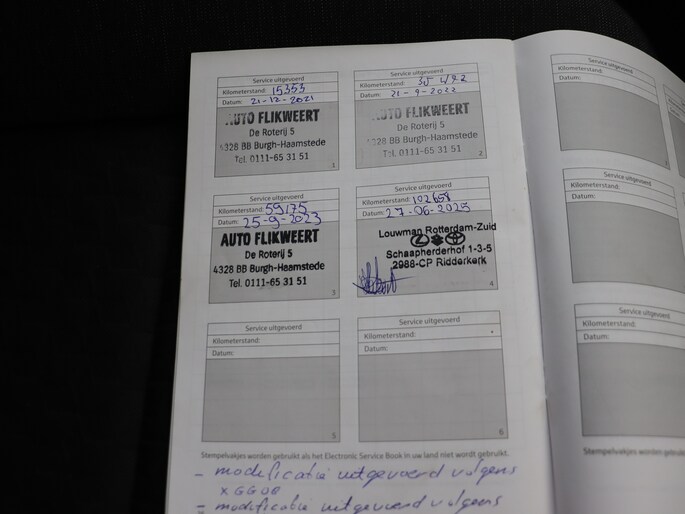 Service uitgevoerd
Kilometerstand: 15353
Datum: 21-12-2021
AUTO FLIKWEERT
De Roterij 5
4328 BB Burgh-Haamstede
Tel. 0111-65 31 51
1
Service uitgevoerd
Kilometerstand: 35 492
Datum: 21-9-2022
AUTO FLIKWEERT
De Roterij 5
4328 BB Burgh-Haamstede
Tel. 0111-65 31 51
2
Service uitgevoerd
Kilometerstand: 59175
Datum: 25-9-2023
AUTO FLIKWEERT
De Roterij 5
4328 BB Burgh-Haamstede
Tel. 0111-65 31 51
3
Service uitgevoerd
Kilometerstand: 102658
Datum: 27-06-2025
Louwman Rotterdam-Zuid
Schaapherderhof 1-3-5
2988-CP Ridderkerk
4
Service uitgevoerd
Kilometerstand:
Datum:
5
Service uitgevoerd
Kilometerstand:
Datum:
6
Stempelvakjes worden gebruikt als het Electronic Service Book in uw land niet wordt gebruikt.
- modificatie uitgevoerd volgens
- modificatie uitgevoerd volgens
Service
Kilometerstand:
Datum:
Kilom
Datum
Service uitgevoe
Kilometerstand:
Datum:
Kilo
Dat
Service uitgevoe
Kilometerstand:
Datum:
Stempelvakjes worden gebru